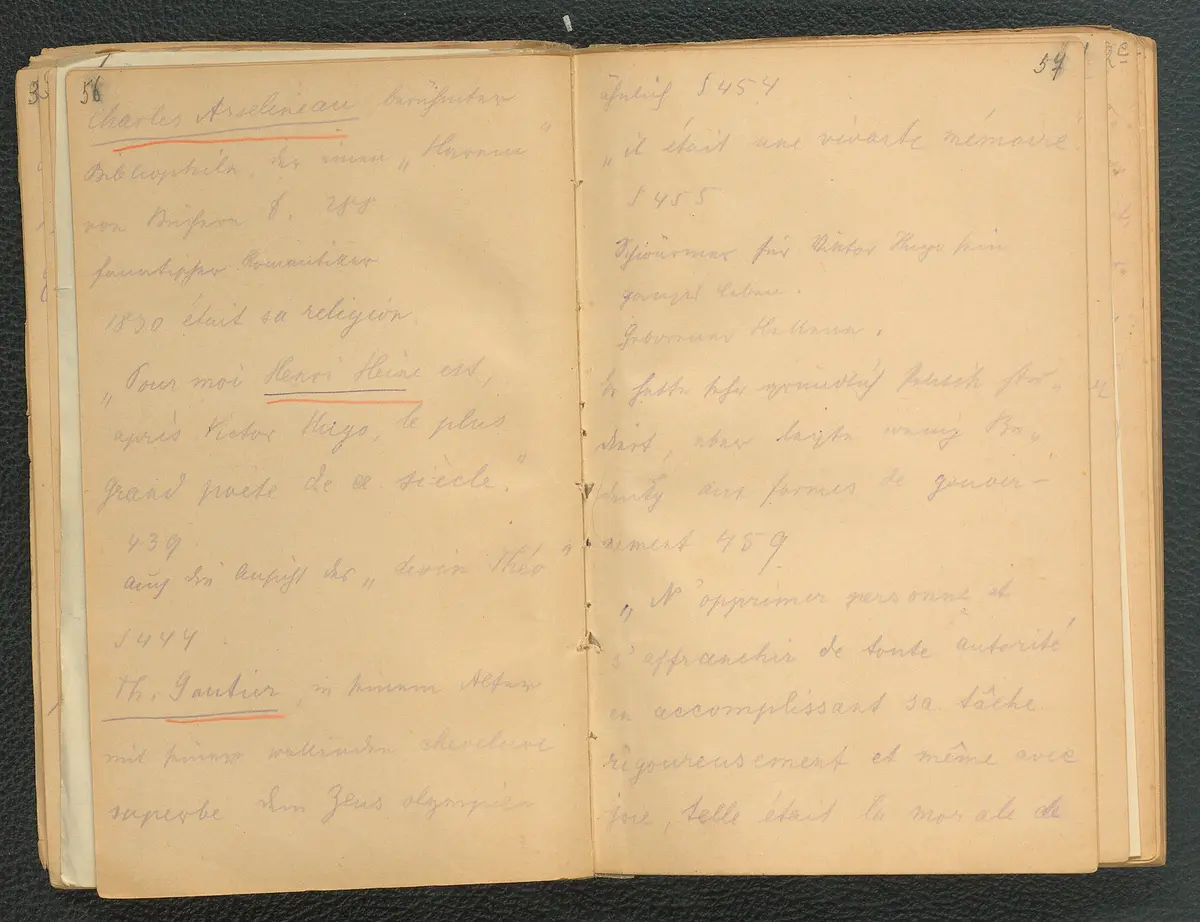 56
Charles Asselineau berühmter
Bibliophile, der einen „Harem"
von Büchern S. 288
fanatischer Romantiker
1830 était sa religion.
„Pour moi Henri Heine est,
après Victor Hugo, le plus
grand poète de ce siècle."
439
auch die Ansicht des „divin Théo"
S 444
Th. Gautier, in seinem Alter
mit seiner wallenden chevelure
superbe dem Zeus olympien
57
ähnlich S 454
„il était une vivante mémoire"
S 455
Schwärmer für Viktor Hugo sein
ganzes Leben.
Geborener
Er hatte sehr gründlich Politik stu-
diert, aber legte wenig Be-
deutg aux formes de gouver-
nement 459
„N'opprimer personne et
s'affranchir de toute autorité
en accomplissant sa tâche
rigoureusement et même avec
joie, telle était la morale de